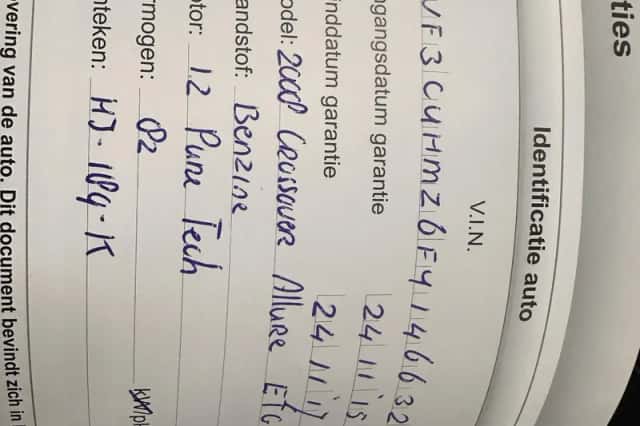 ties
Identificatie auto
V.I.N.
VF3CUHMZ6FY146632
ngangsdatum garantie 24 11 15
inddatum garantie 24 11 17
odel: 2008 Crossover Allure ETG
andstof: Benzine
otor: 1.2 Pure Tech
rmogen: 82
nteken: HJ·189·K
vering van de auto. Dit document bevindt zich in